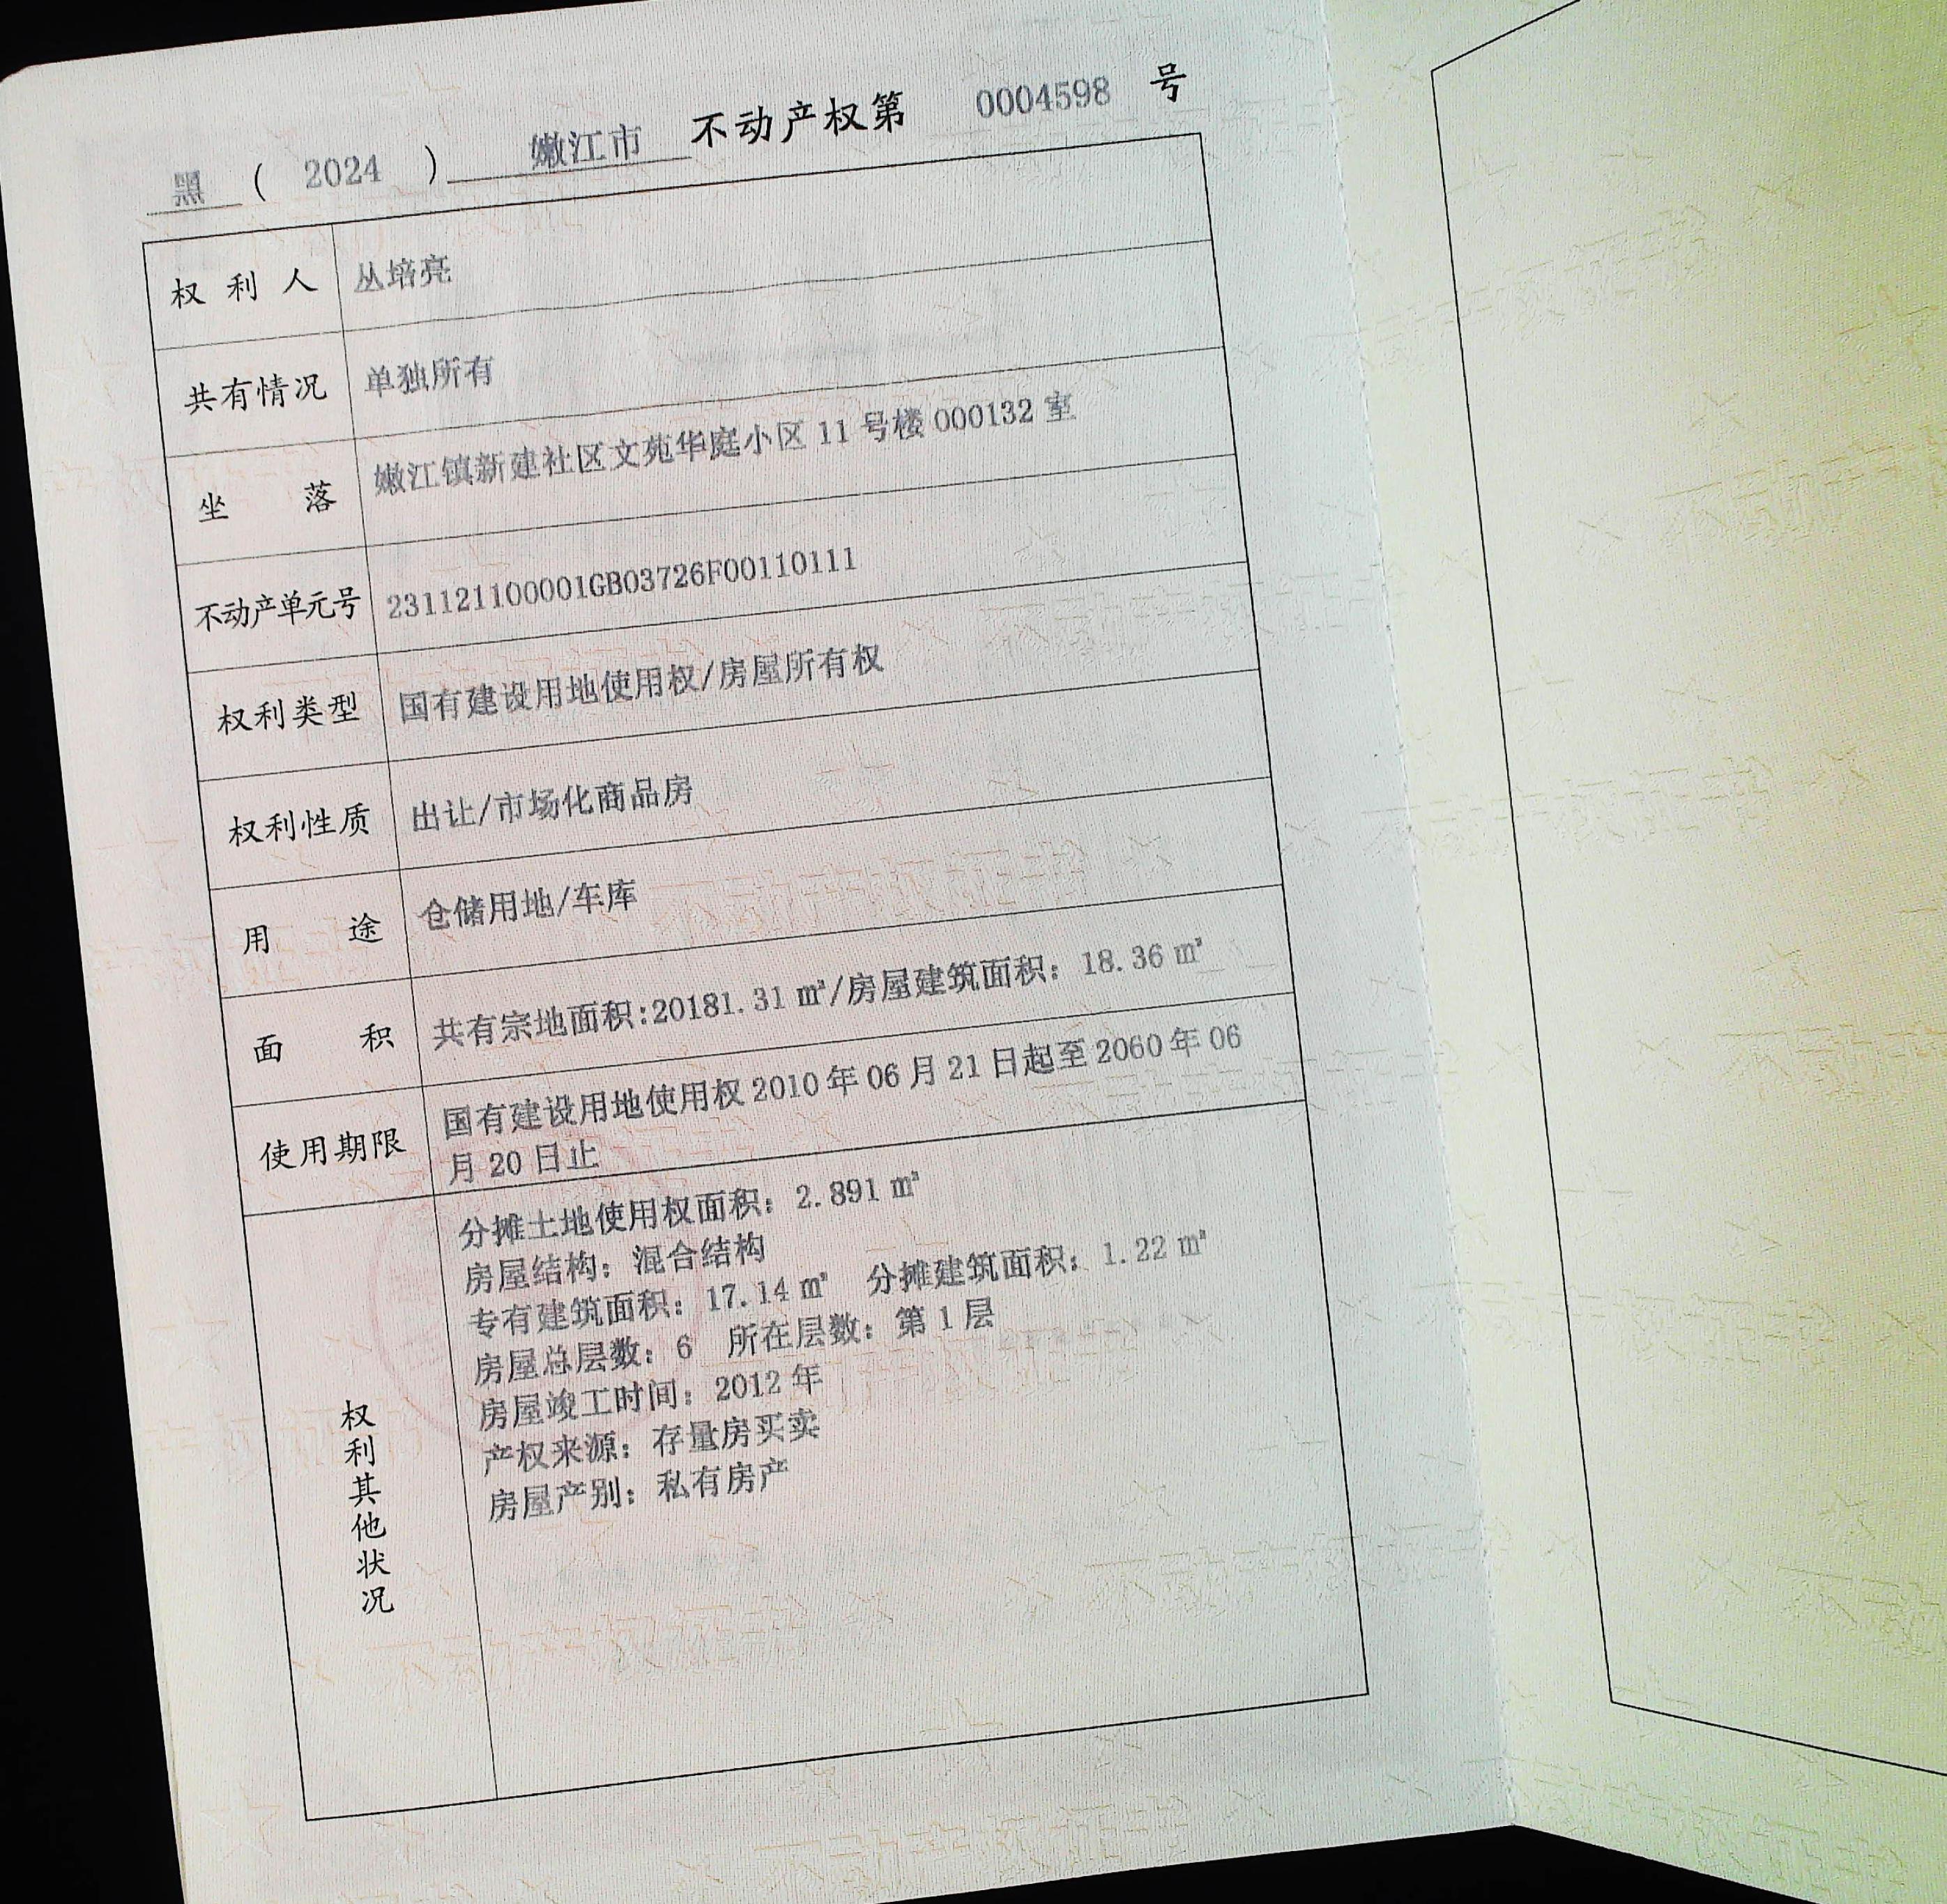 黑 ( 2024 ) 嫩江市 不动产权第 0004598 号
权利人 丛培亮
共有情况 单独所有
坐落 嫩江镇新建社区文苑华庭小区 11 号楼 000132 室
不动产单元号 231121100001GB03726F00110111
权利类型 国有建设用地使用权/房屋所有权
权利性质 出让/市场化商品房
用途 仓储用地/车库
面积 共有宗地面积:20181.31 ㎡/房屋建筑面积: 18.36 ㎡
使用期限 国有建设用地使用权 2010 年 06 月 21 日起至 2060 年 06
月 20 日止
权利其他状况
分摊土地使用权面积: 2.891 ㎡
房屋结构: 混合结构
专有建筑面积: 17.14 ㎡ 分摊建筑面积: 1.22 ㎡
房屋总层数: 6 所在层数: 第 1 层
房屋竣工时间: 2012 年
产权来源: 存量房买卖
房屋产别: 私有房产